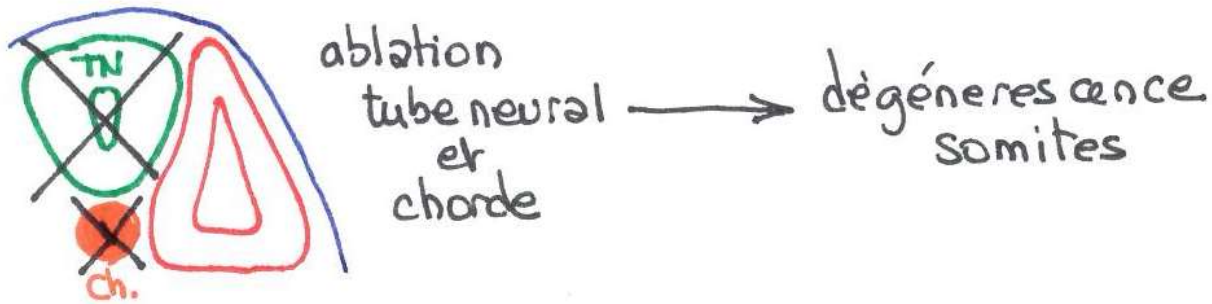 TN
ablation
tube neural
et
chorde
dégéneres cence
somites
Ch.